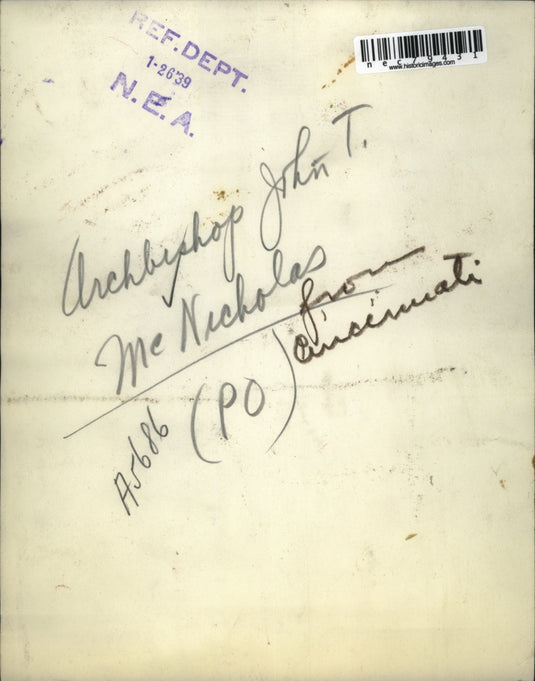 REF. DEPT.
1-26'39
N.E.A.
nec79431
www.historicimages.com
Archbishop John T.
McNicholas
from
Cincinnati
(PO)
A5686